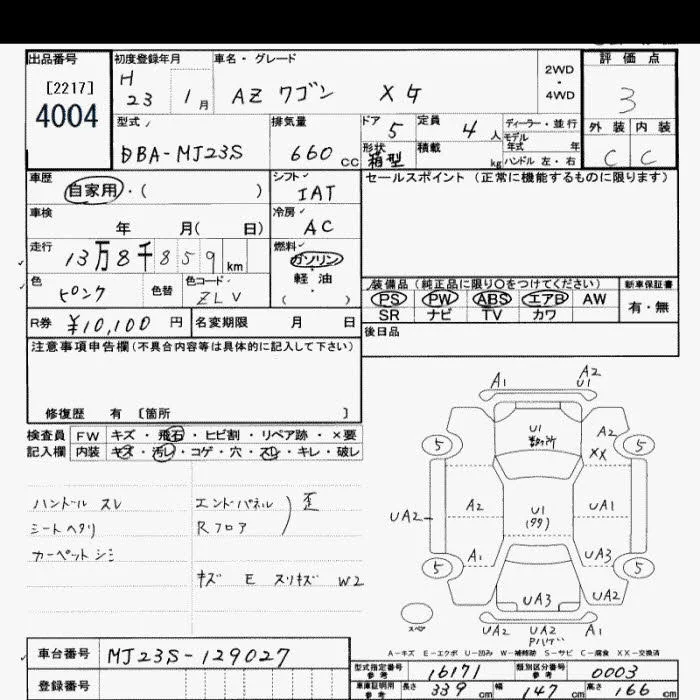 出品番号 初度登録年月 車名・グレード 評価点
[2217]
4004
H 23 1月 AZ ワゴン XG 2WD・4WD 3
外装 内装
C C
型式 排気量 ドア 5 定員 4人 ディーラー・並行
DBA-MJ23S 660cc 形状 箱型 積載 kg モデル年式 年
ハンドル 左・右
車歴 自家用・( ) シフト IAT セールスポイント (正常に機能するものに限ります)
車検 年 月( 日) 冷房 AC
走行 13万8千859km 燃料 ガソリン・軽油 ( )
色 ピンク 色替 色コード ZLV
装備品 (純正品に限り○をつけてください) 新車保証書
PS PW ABS エアB AW 有・無
SR ナビ TV カワ
R券 ¥10,100円 名変期限 月 日
後日品
注意事項申告欄(不具合内容等は具体的に記入して下さい)
修復歴 有 [箇所 ]
検査員 FW キズ・飛石・ヒビ割・リペア跡・×要
記入欄 内装 キズ・汚レ・コゲ・穴・スレ・キレ・破レ
ハンドル スレ エンドパネル 歪
シートヘタリ Rフロア
カーペットシミ
キズ E スリキズ W2
A1 A2
U1
U1 A2
5 XX 5
UA2 A2 U1 UA1
A1 UA3
5 5
UA3
スペア UA2 UA2 A1
A-キズ E-エクボ U-凹み W-補修跡 S-サビ C-腐食 XX-交換済
車台番号 MJ23S-129027
登録番号
型式指定番号 参考 16171 類別区分番号 参考 0003
車庫証明用 参考 長さ 339cm 幅 147cm 高さ 166cm